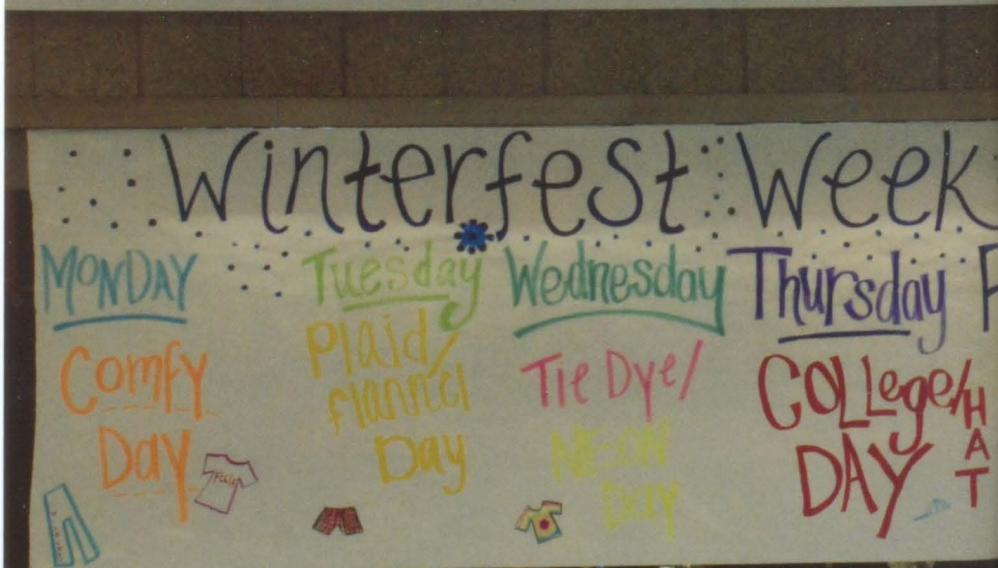 Winterfest Week
MONDAY
Comfy
Day
Tuesday
Plaid/
flannel
Day
Wednesday
Tie Dye/
NEON
Day
Thursday
COLLege/
HAT
DAY
F